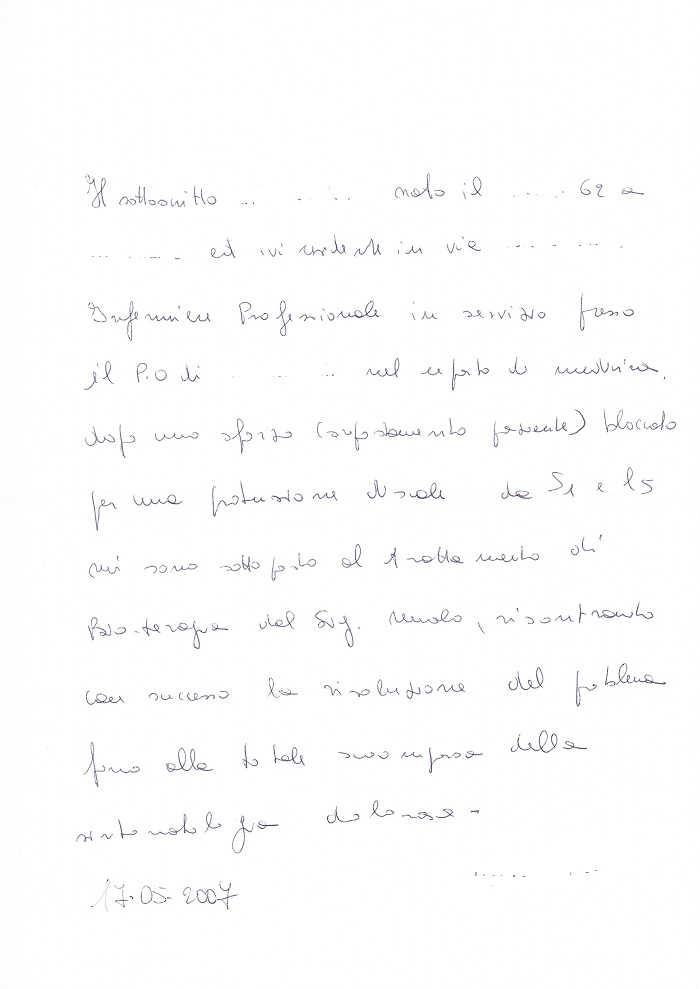 Il sottoscritto ... ... nato il ..... 62 a
........ ed ivi residente in via ........
Infermiere Professionale in servizio presso
il P.O di ........ nel reparto di medicina,
dopo uno sforzo (spostamento paziente) bloccato
per una protusione discale da S1 e L5
mi sono sottoposto al trattamento di
Bio-terapia del Sig. , riscontrando
con successo la risoluzione del problema
fino alla totale scomparsa della
sintomatologia dolorosa -
17-05-2007